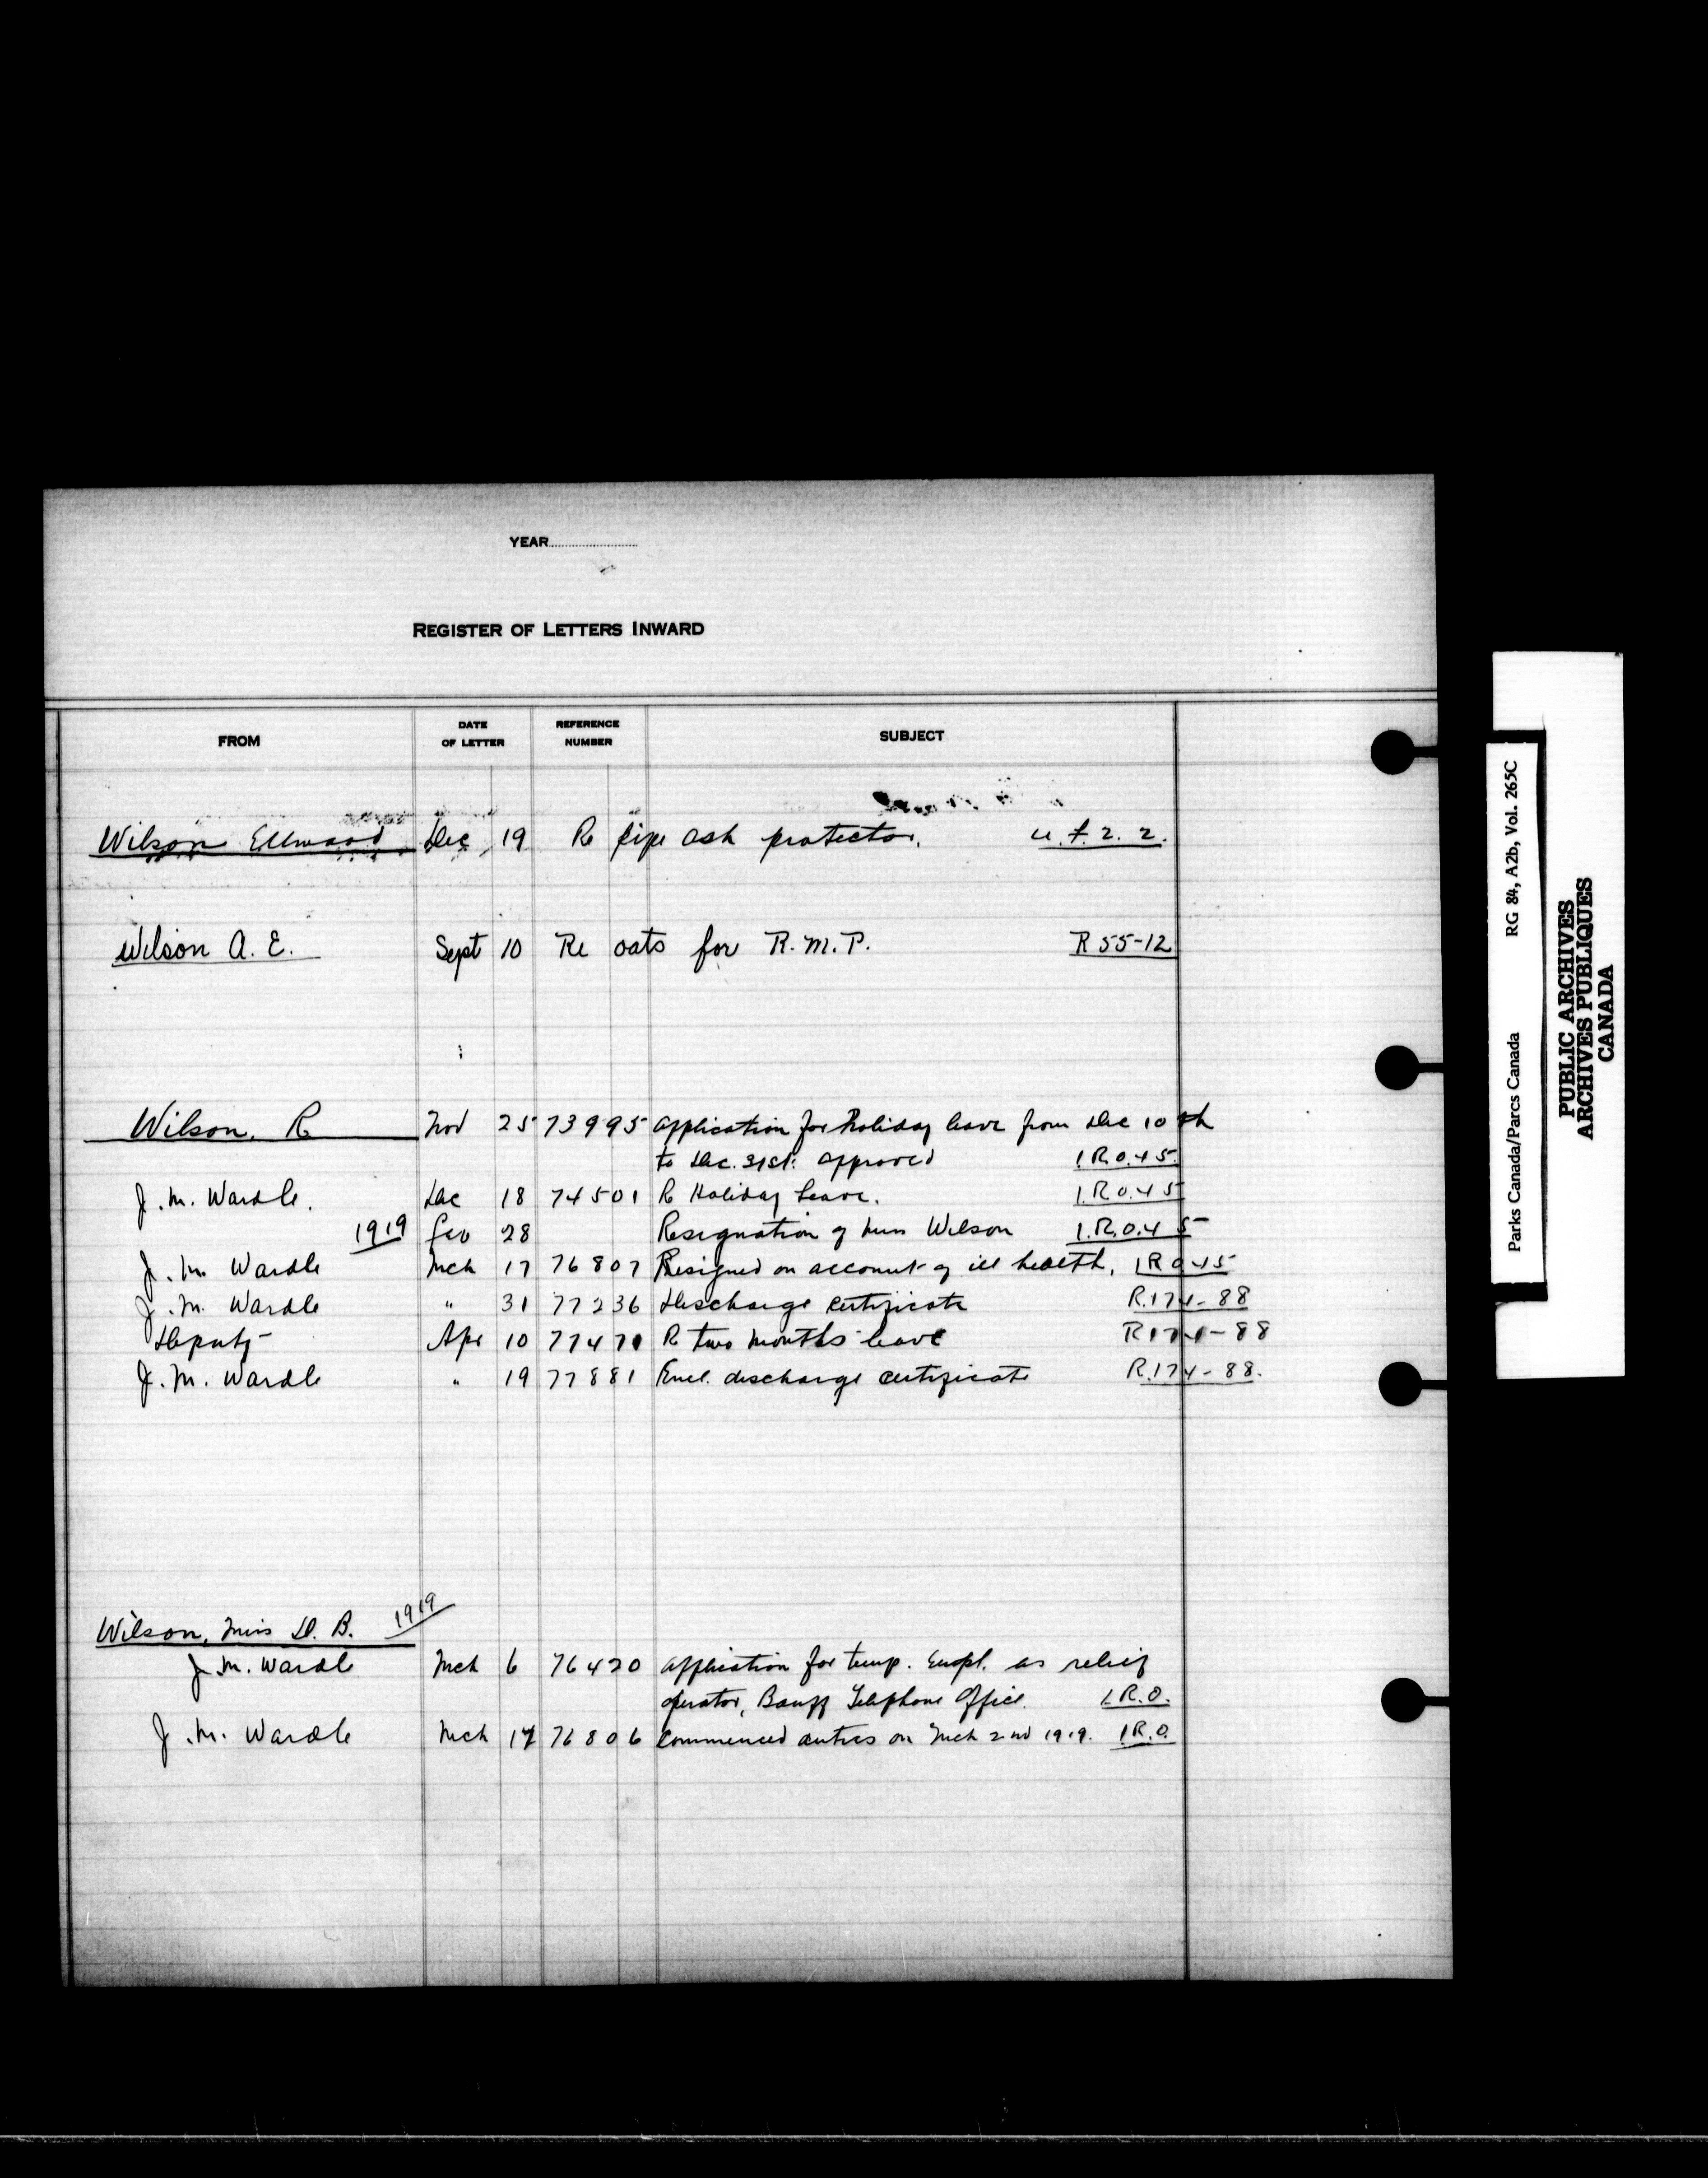 YEAR
REGISTER OF LETTERS INWARD
FROM DATE OF LETTER REFERENCE NUMBER SUBJECT
Wilson Ellwood Dec 19 Re pipe ash protector. U.F.2.2.
Wilson A. E. Sept 10 Re oats for R.M.P. R 55-12
Wilson, R Nov 25 73995 Application for Holiday leave from Dec 10th
to Dec. 31st. approved 1.R.0.45.
J. M. Wardle. Dec 18 74501 Re Holiday Leave. 1.R.0.45
1919 Feb 28 Resignation of Miss Wilson 1.R.0.45
J. M. Wardle Mch 17 76807 Resigned on account of ill health, 1R045
J. M. Wardle " 31 77236 Discharge certificate R.174-88
Deputy Apr 10 77471 Re two months leave R174-88
J. M. Wardle " 19 77881 Encl. discharge certificate R.174-88.
Wilson, Miss D. B. 1919
J. M. Wardle Mch 6 76420 Application for temp. Empl. as relief
operator, Banff Telephone Office 1.R.O.
J. M. Wardle Mch 17 76806 Commenced duties on Mch 2nd 1919. 1R.O.
Parks Canada/Parcs Canada RG 84, A2b, Vol. 265C
PUBLIC ARCHIVES
ARCHIVES PUBLIQUES
CANADA